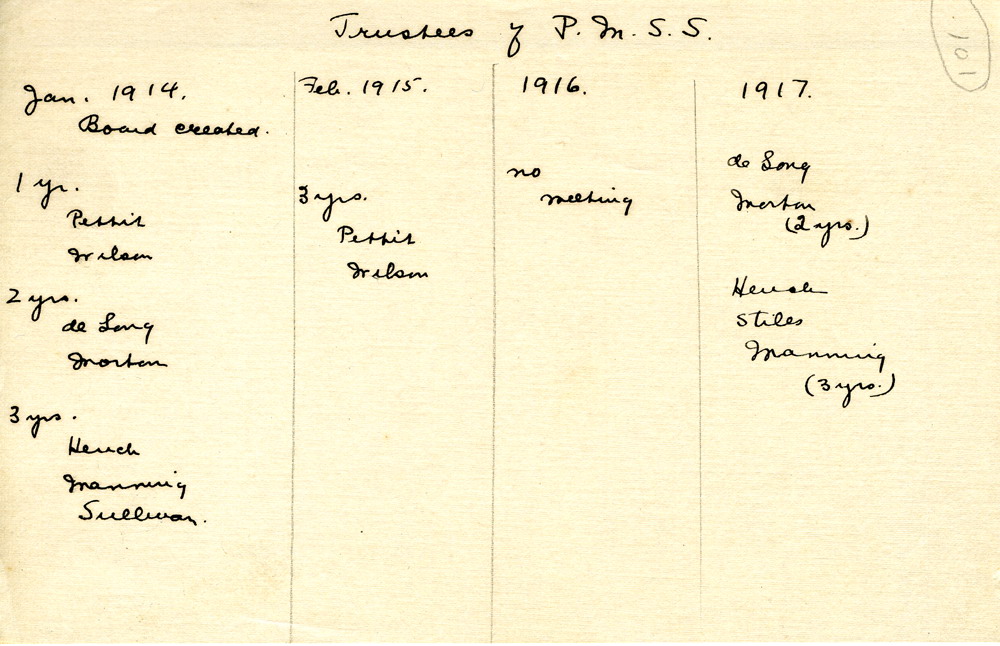 Trustees of P.M.S.S.
101.
Jan. 1914.
Board created.
1 yr.
Pettit
Wilson
2 yrs.
de Long
Morton
3 yrs.
Hench
Manning
Sullivan.
Feb. 1915.
3 yrs.
Pettit
Wilson
1916.
no
meeting
1917.
de Long
Morton
(2 yrs.)
Hench
Stiles
Manning
(3 yrs.)